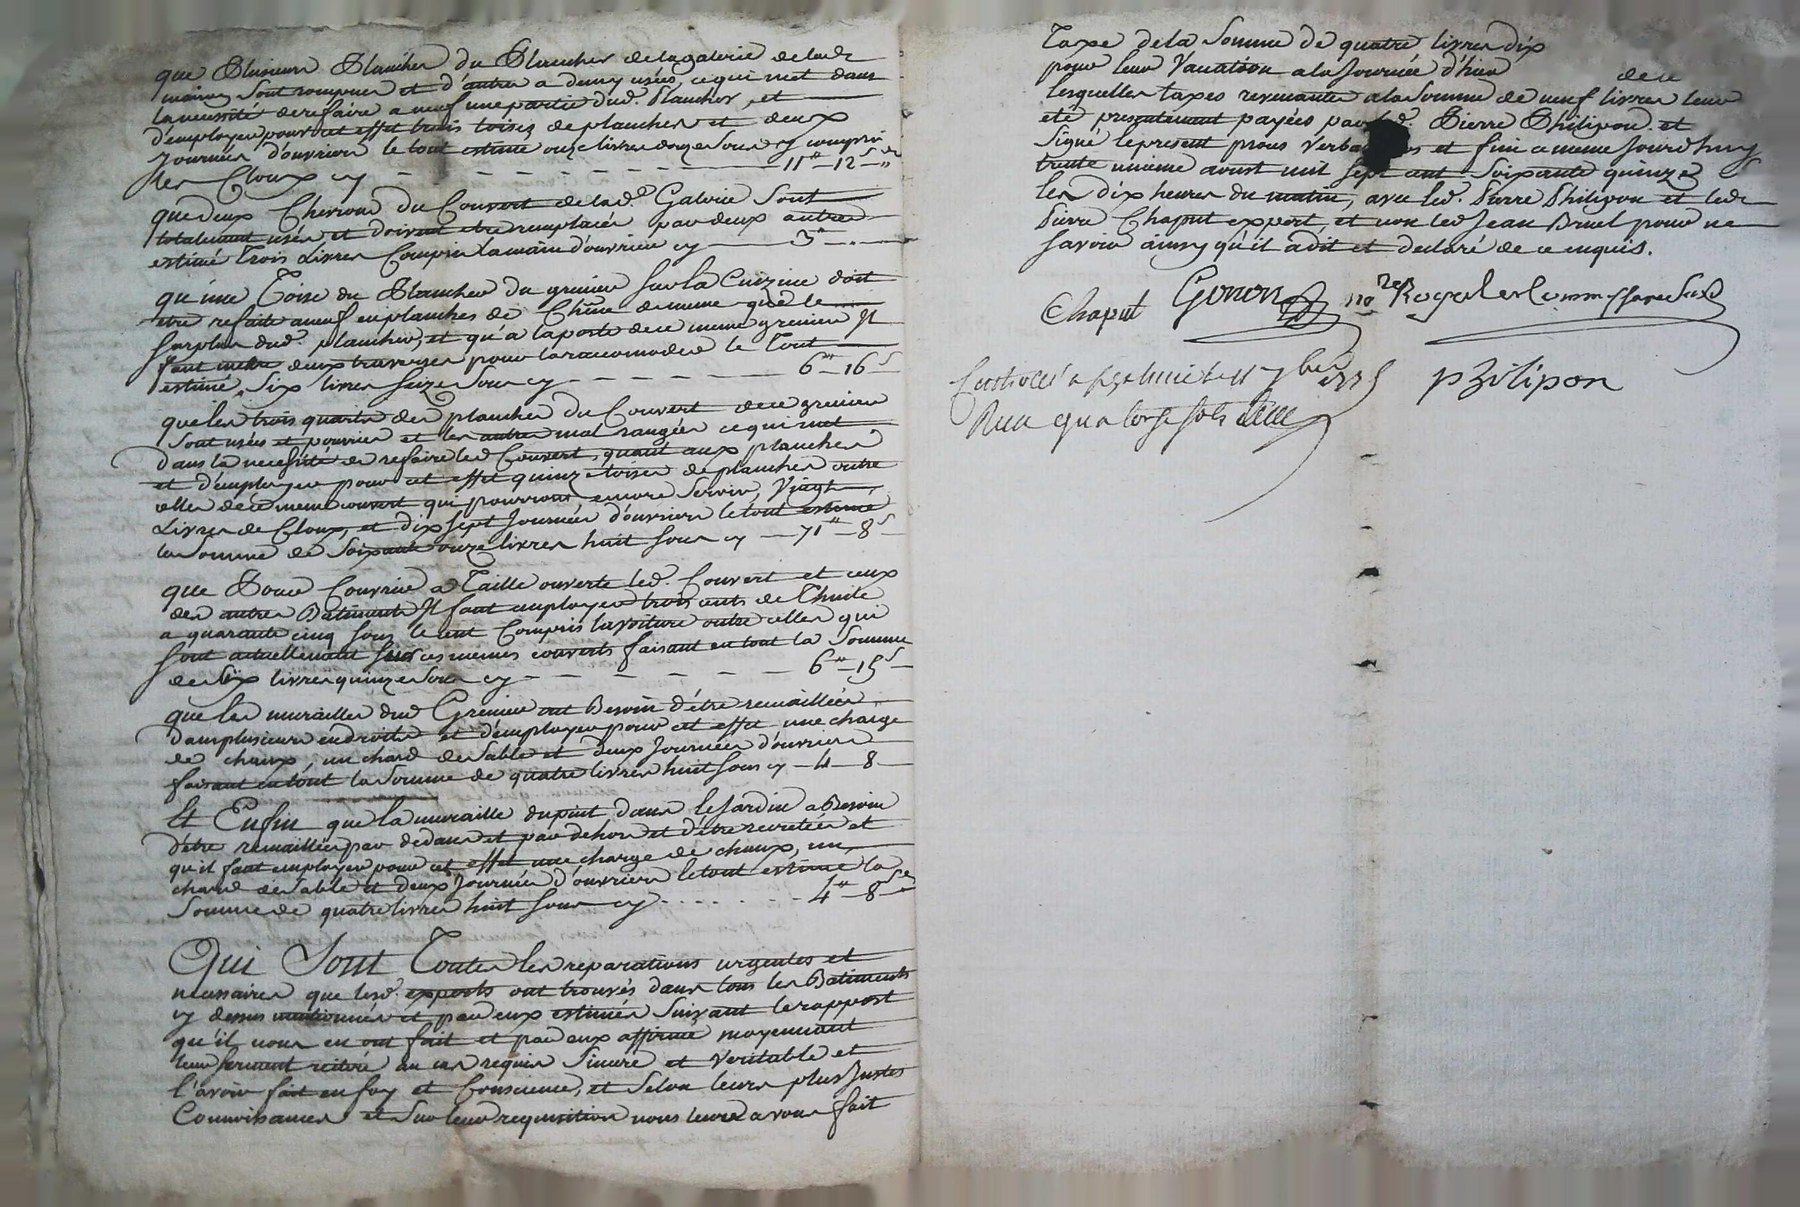 que Plusieurs Planches du Plancher de la galerie de lade
maison sont rompues et d'autres a demy usées, ce qui met dans
la necessité de refaire a neuf une partie dud. Plancher, et
d'employer pour cet effet trois toises de planches et deux
Journées d'ouvrier le tout estimé onze livres douze sous y compris
les Cloux cy 11# 12s
que deux Chevrons du Couvert de lad. Galerie sont
totalement usés, et doivent etre remplacés par deux autres
estimé trois Livres Compris la main d'ouvrier cy 3#
qu'une Toise du Plancher du grenier sur la Cuizine doit
etre refaite a neuf en planches de Chêne de meme que le
surplus dud. plancher, et qu'a la porte de ce meme grenier Il
faut mettre deux traverses pour la racomoder le Tout
estimé, Six livres seize Sous cy 6# 16s
que les trois quarts des planches du Couvert de ce grenier
sont usées et pourries et les autres mal rangées ce qui met
dans la necessité de refaire led. Couvert, quant aux planches
et d'employer pour cet effet quinze toises de planches outre
celles de ce meme couvert qui pourront encore servir, Vingt
Livres de Cloux, et dix sept Journées d'ouvrier le tout estimé
la Somme de Soixante onze livres huit sous cy 71# 8s
que Pour Couvrir a Taille ouverte led. Couvert et ceux
des autres Batiments Il faut employer trois cents de Thuile
a quarante cinq sous le cent Compris la voiture outre celles qui
sont actuellement sur ces memes couverts faisant en tout la Somme
de six livres quinze sous cy 6# 15s
que les murailles dud Grenier ont Besoin d'être remaillées
dans plusieurs endroits et d'employer pour cet effet une charge
de chaux, un chard de sable et deux Journées d'ouvrier
faisant en tout la Somme de quatre livres huit sous cy 4 8
Et Enfin que la muraille du puit dans le Jardin a Besoin
d'être remaillée par dedans et par dehors et d'être recretée et
qu'il faut employer pour cet effet une charge de chaux, un
chard de sable et deux Journées d'ouvrier le tout estimé la
Somme de quatre livres huit sous cy 4# 8s
Qui Sont Toutes les reparations urgentes et
necessaires que lesd. experts ont trouvés dans tous les Batiments
cy dessus mentionnés et par eux estimés Suivant le rapport
qu'il nous en ont fait et par eux affirmé moyennant
leur serment reitéré en cas requis Sincere et Veritable et
l'avoir fait en foy et Conscience, et Selon leurs plus Justes
Connoissances et sur leur requisition nous leurs avons fait
Taxe de la Somme de quatre livres dix
pour leur Vacation a la Journée d'hier
de ce
lesquelles taxes revenantes a la Somme de neuf livres leur
ete presentement payées par led. Pierre Philipon. et
Signé le present proces Verbal et fini ce meme Jourd'huy
trente unieme aoust mil sept cent Soixante quinze
les dix heures du matin, avec led. Pierre Philipon et led
Pierre Chaput expert, et non led Jean Bruel pour ne
savoir ainsy qu'il a dit et declaré de ce enquis.
Chaput Gonon nore Royal et Commissaire Susd
p zilipon
Controllé a le 11 7bre 1775
Recu quatorze sols